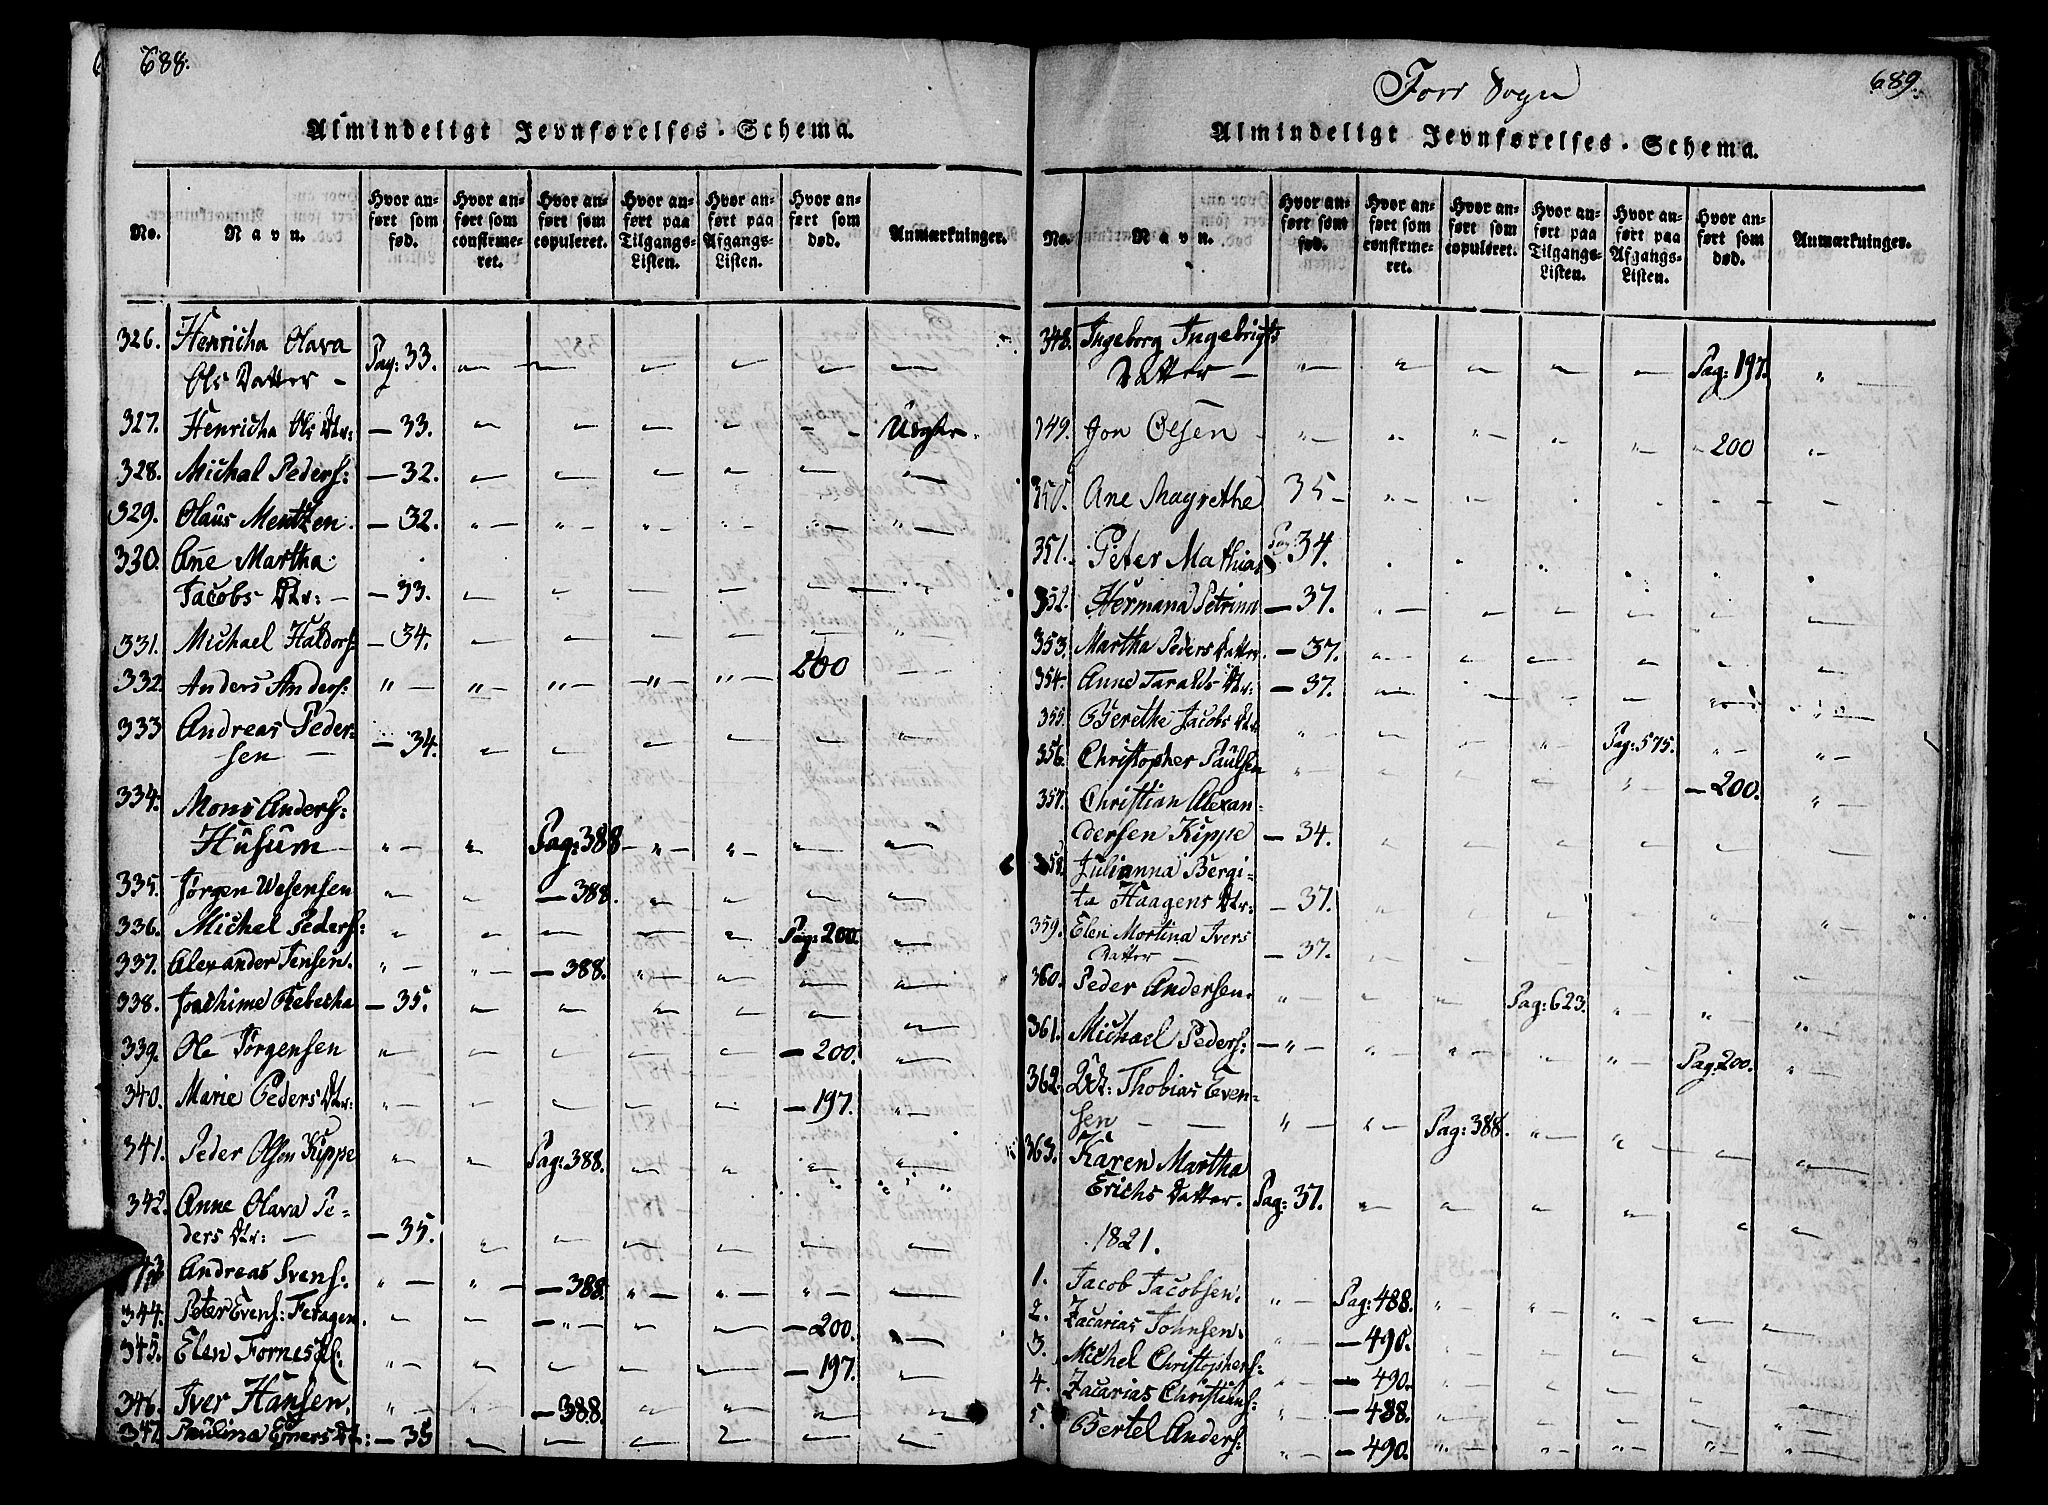 688.
Almindeligt Jevnførelses-Schema.
No.
Navn.
Hvor anført som fød.
Hvor anført som confirmeret.
Hvor anført som copuleret.
Hvor anført paa Tilgangs-Listen.
Hvor anført paa Afgangs-Listen.
Hvor anført som død.
Anmærkninger.
326. Henricha Olava
Ols Datter — Pag: 33.
327. Henricha Ols Dtr: — 33.
328. Michal Peders: — 32.
329. Olaus Mentzen. — 32.
330. Ane Martha
Jacobs Dtr: — — 33.
331. Michael Haldors: — 34.
332. Anders Anders: 200
333 Andreas Peder-
sen — — 34.
334. Mons Anders:
Husum — Pag: 388
335. Jørgen Wesensen — 388.
336. Michel Peders: Pag: 200.
337. Alexander Jensen. — 388.
338. Joachime Rebecha — 35.
339. Ole Jørgensen — 200.
340. Marie Peders Dtr: — 197.
341. Peder Olsen Kippe Pag: 388.
342. Anne Olava Pe-
ders Dtr: — — 35.
343 Andreas Svens: — 388.
344. Peter Evens: — 200.
345. Elen — 197.
346. Iver Hansen. — 388.
347. Paulina Ejners Dt: — 35
Forr Sogn
689.
Almindeligt Jevnførelses-Schema.
No.
Navn.
Hvor anført som fød.
Hvor anført som confirmeret.
Hvor anført som copuleret.
Hvor anført paa Tilgangs-Listen.
Hvor anført paa Afgangs-Listen.
Hvor anført som død.
Anmærkninger.
348. Ingeborg Ingebrigts
Datter — Pag: 197.
349. Jon Olsen 200
350. Ane Magrethe 35 —
351. Peter Mathias Pag: 34.
352. Hermana Petrina — 37.
353. Martha Peders Datter. — 37.
354. Anne Taralds Dtr: — 37.
355. Berethe Jacobs Dtr Pag: 575.
356. Christopher Paulsen — 200.
357. Christian Alexan-
dersen Kippe — 34.
358. Julianna Bergi-
ta Haagens Dtr: — 37.
359. Elen Mortina Ivers
Datter — — 37.
360. Peder Andersen. Pag: 623.
361. Michael Peders: Pag: 200.
362. Thobias Even-
sen — — Pag: 388.
363. Karen Martha
Erichs Datter. Pag: 37.
1821.
1. Jacob Jacobsen. Pag: 488.
2. Zacarias Johnsen. — 490.
3. Michel Christophers: — 490.
4. Zacarias Christians: — 488.
5. Bertel Anders: — 490.